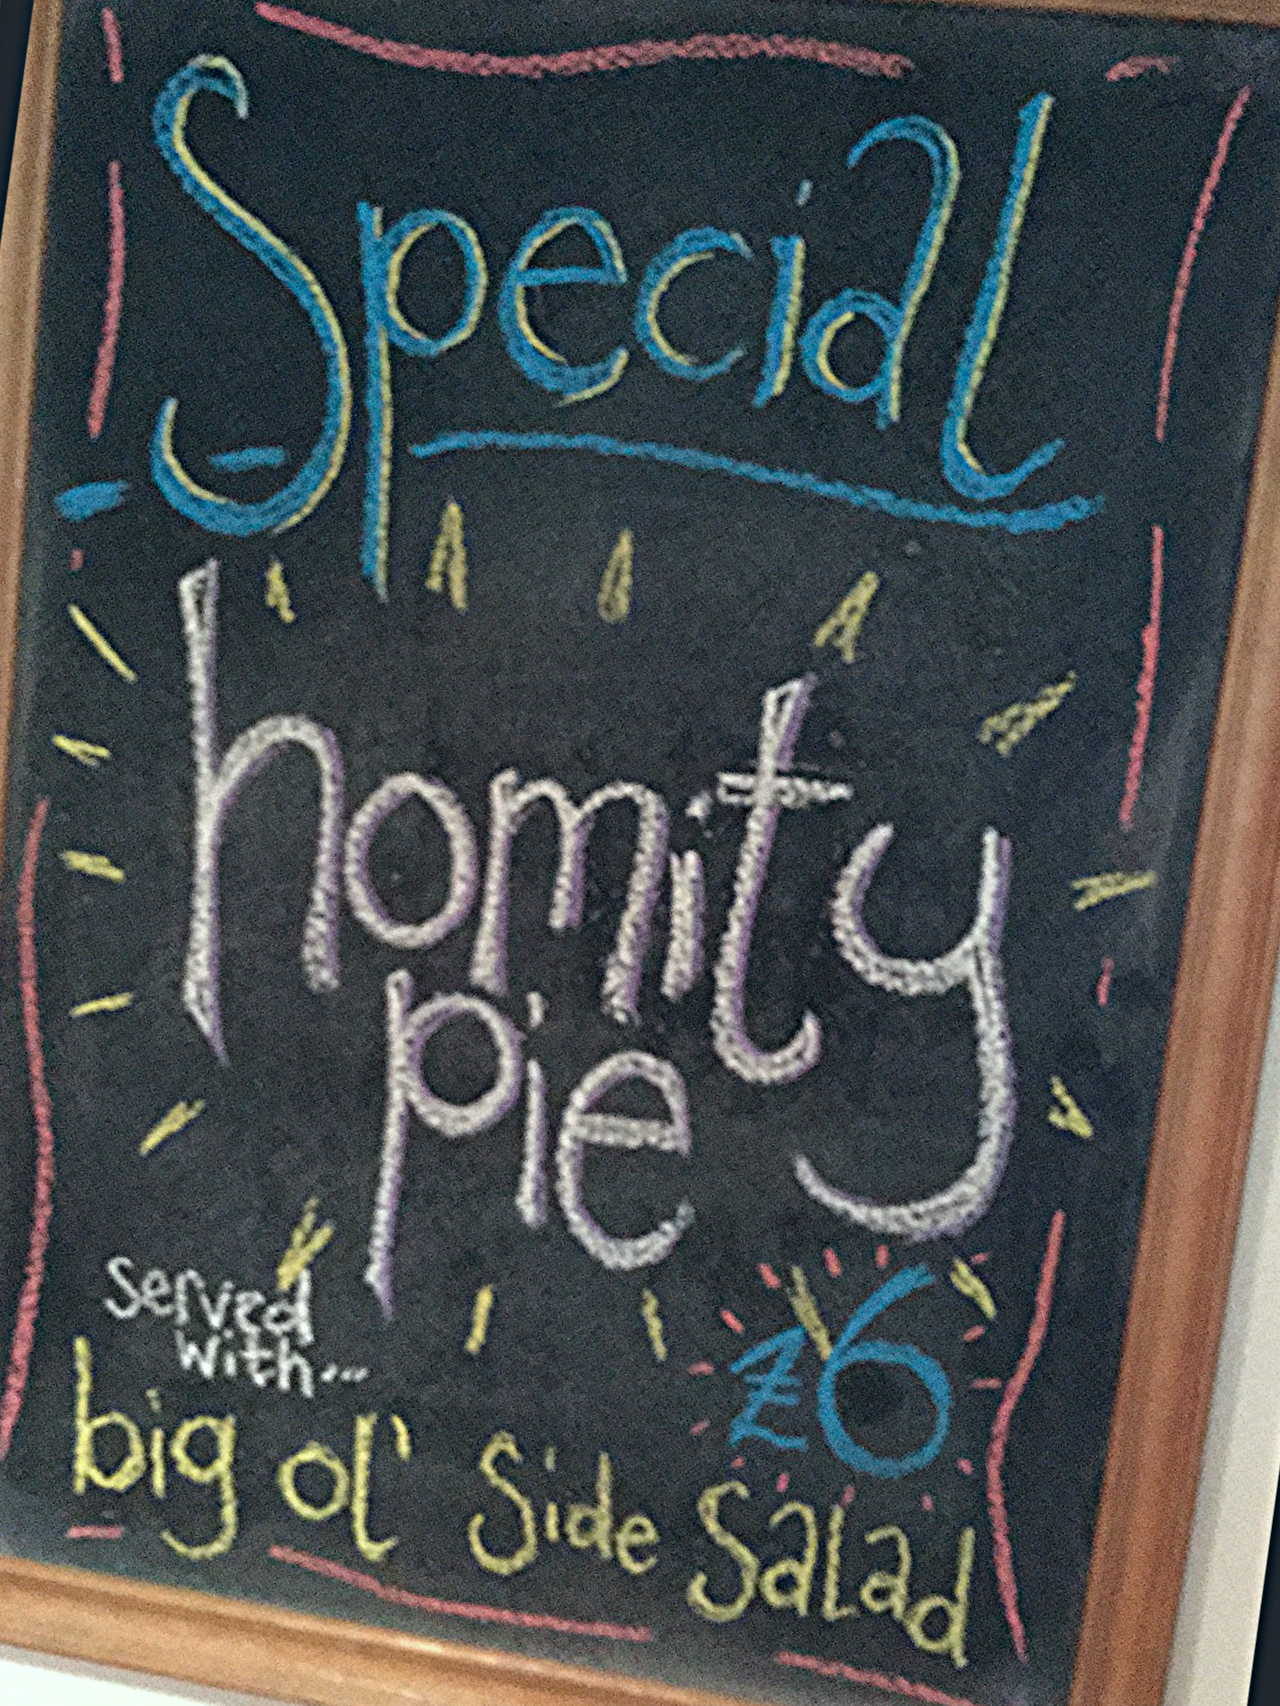 Special
homity
pie
served
with...
£6
big ol' Side Salad